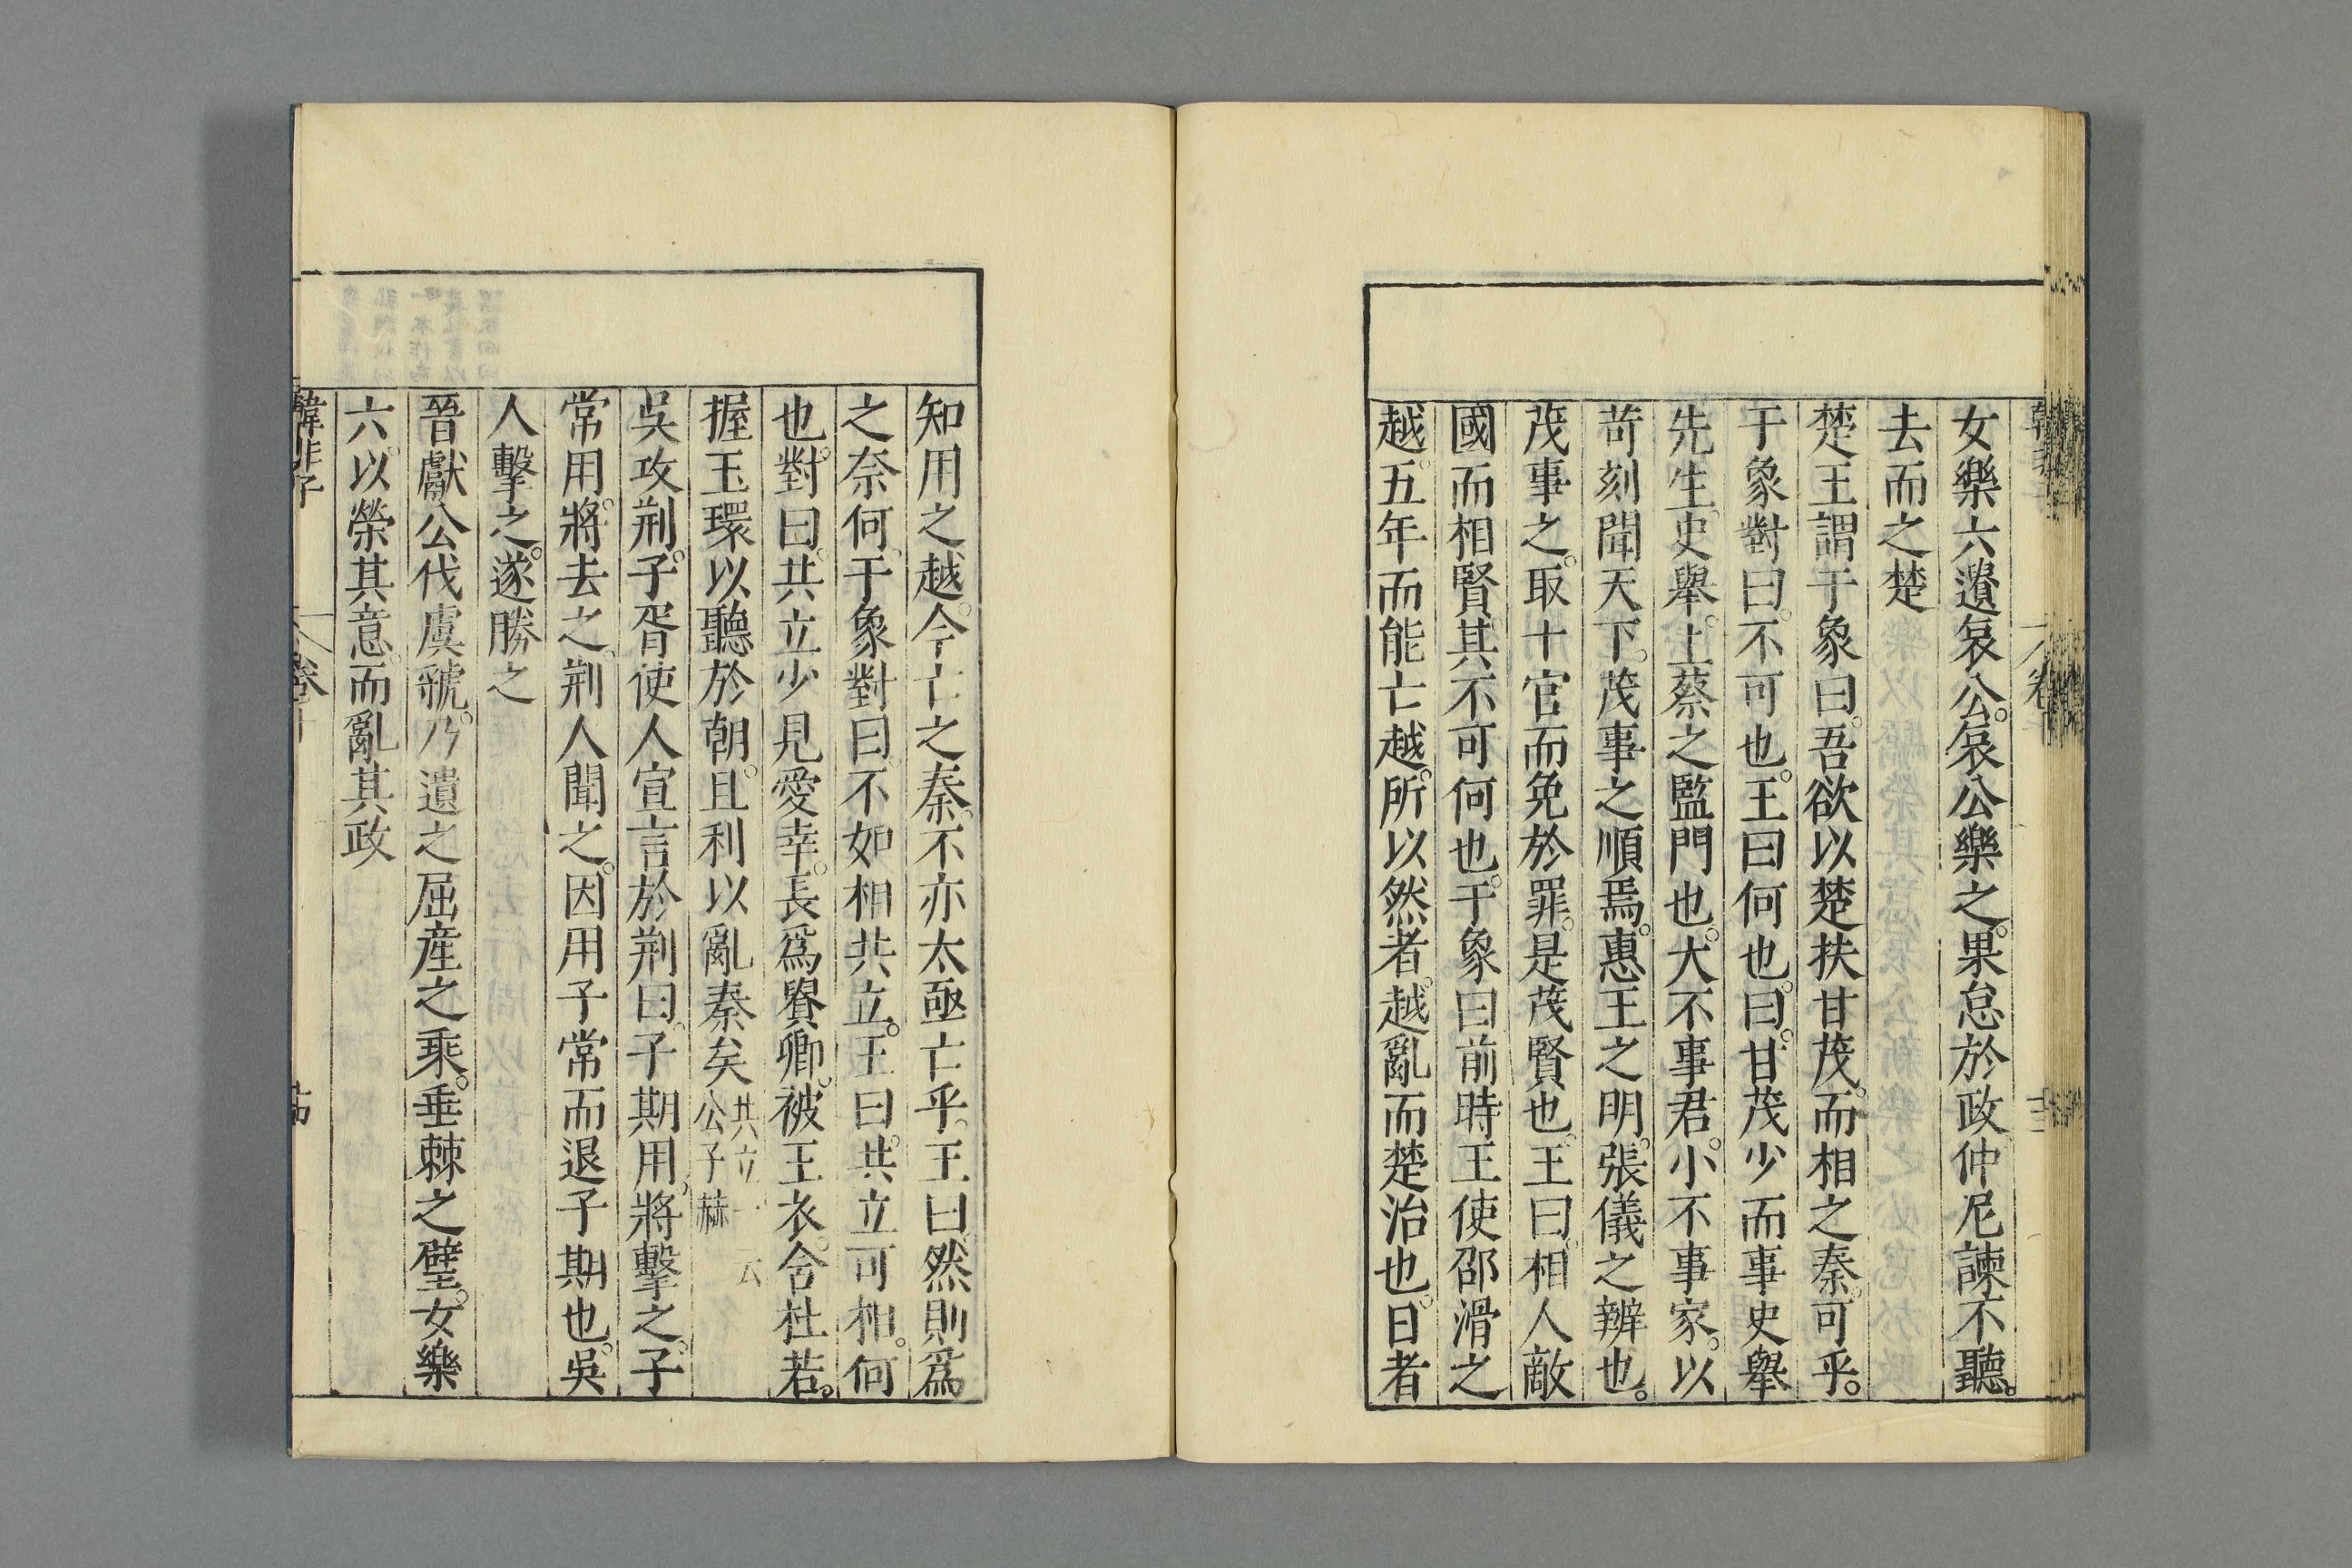 女樂六遺哀公。哀公樂之。果怠於政。仲尼諫不聽。
去而之楚
楚王謂于象曰。吾欲以楚扶甘茂。而相之秦。可乎。
于象對曰。不可也。王曰何也。曰。甘茂少而事史舉
先生。史舉。上蔡之監門也。大不事君。小不事家。以
苛刻聞天下。茂事之順焉。惠王之明。張儀之辨也。
茂事之。取十官而免於罪。是茂賢也。王曰。相人敵
國而相賢。其不可何也。于象曰。前時王使邵滑之
越。五年而能亡越。所以然者。越亂而楚治也。日者
知用之越。今亡之秦。不亦太亟亡乎。王曰。然則爲
之奈何。于象對曰。不如相共立。王曰。共立可相。何
也。對曰。共立少見愛幸。長爲貴卿。被王衣。含杜若。
握玉環。以聽於朝。且利以亂秦矣共立一云公子赫
吳攻荆。子胥使人宣言於荆曰。子期用。將擊之。子
常用。將去之。荆人聞之。因用子常而退子期也。吳
人擊之。遂勝之
晉獻公伐虞虢。乃遺之屈産之乘。垂棘之璧。女樂
六。以榮其意。而亂其政
韓非子 卷十